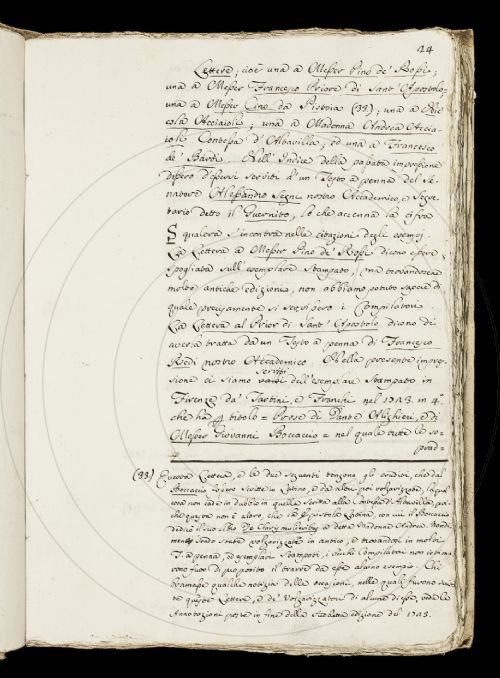 24
Lettere; cioè una a Messer Pino de' Rossi;
una a Messer Francesco Priore di Sant' Apostolo;
una a Messer Cino da Pistoia (33); una a Nic
cola Acciaioli; una a Madonna Andrea Accia
ioli Contessa d' Altavilla; ed una a Francesco
de' Bardi. Nell' Indice della passata impressione
dissero d'essersi serviti d'un Testo a penna del Se
natore Alessandro Segni nostro Accademico, e Segre
tario detto il Guernito, lo che accenna la cifra
S qualora s'incontra nelle citazioni degli esempj.
La Lettera a Messer Pino de' Rossi dicono essere
spogliata sull' esemplare stampato, ma trovandosene
molte antiche edizioni, non abbiamo potuto sapere di
quale precisamente si servissero i Compilatori.
La Lettera al Prior di Sant' Apostolo dicono di
averla tratta da un Testo a penna di Francesco
Redi nostro Accademico. Nella presente impres
sione ci siamo serviti dell' esemplare stampato in
Firenze da' Tartini, e Franchi nel 1723. in 4°.
che ha titolo = Prose di Dante Alighieri, e di
Messer Giovanni Boccaccio = nel quale tutte le so-
prad-
(33) Questa Lettera, e le due seguenti trazono gli eruditi, che dal
Boccaccio fossero scritte in Latino, e da altri poi volgarizzate, la qual
cosa non cade in dubbio in quella scritta alla Contessa d'Altavilla, poi
che questa non è altro, che la Epistola Latina, con cui il Boccaccio
dedicò il suo libro De Claris mulieribus a detta Madonna Andrea. Nondi
meno sendo state volgarizzate in antico, e trovandosi in molti
T. a penna, ed esemplari stampati, i vecchi Compilatori non istima
rono fuor di proposito il trarre da esse alcuno esempio. Chi
bramasse qualche notizia delle occasioni, nelle quali furono scrit
te queste Lettere, e de' Volgarizzatori di alcune di esse, veda le
Annotazioni poste in fine della suddetta edizione del 1723.